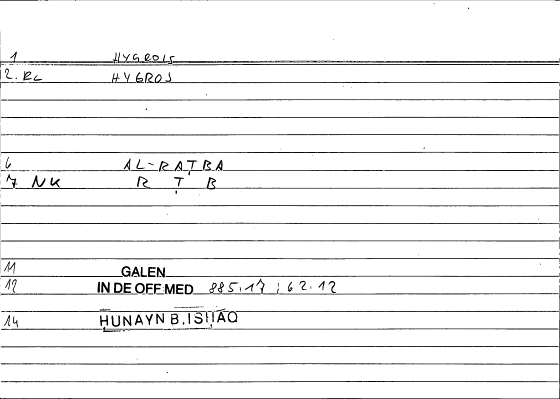 1 HYGROIS
2. RC HYGROS
6 AL-RAṬBA
7 NK R Ṭ B
11 GALEN
12 IN DE OFF MED 885.17 ; 62.12
14 HUNAYN B. ISḤAQ